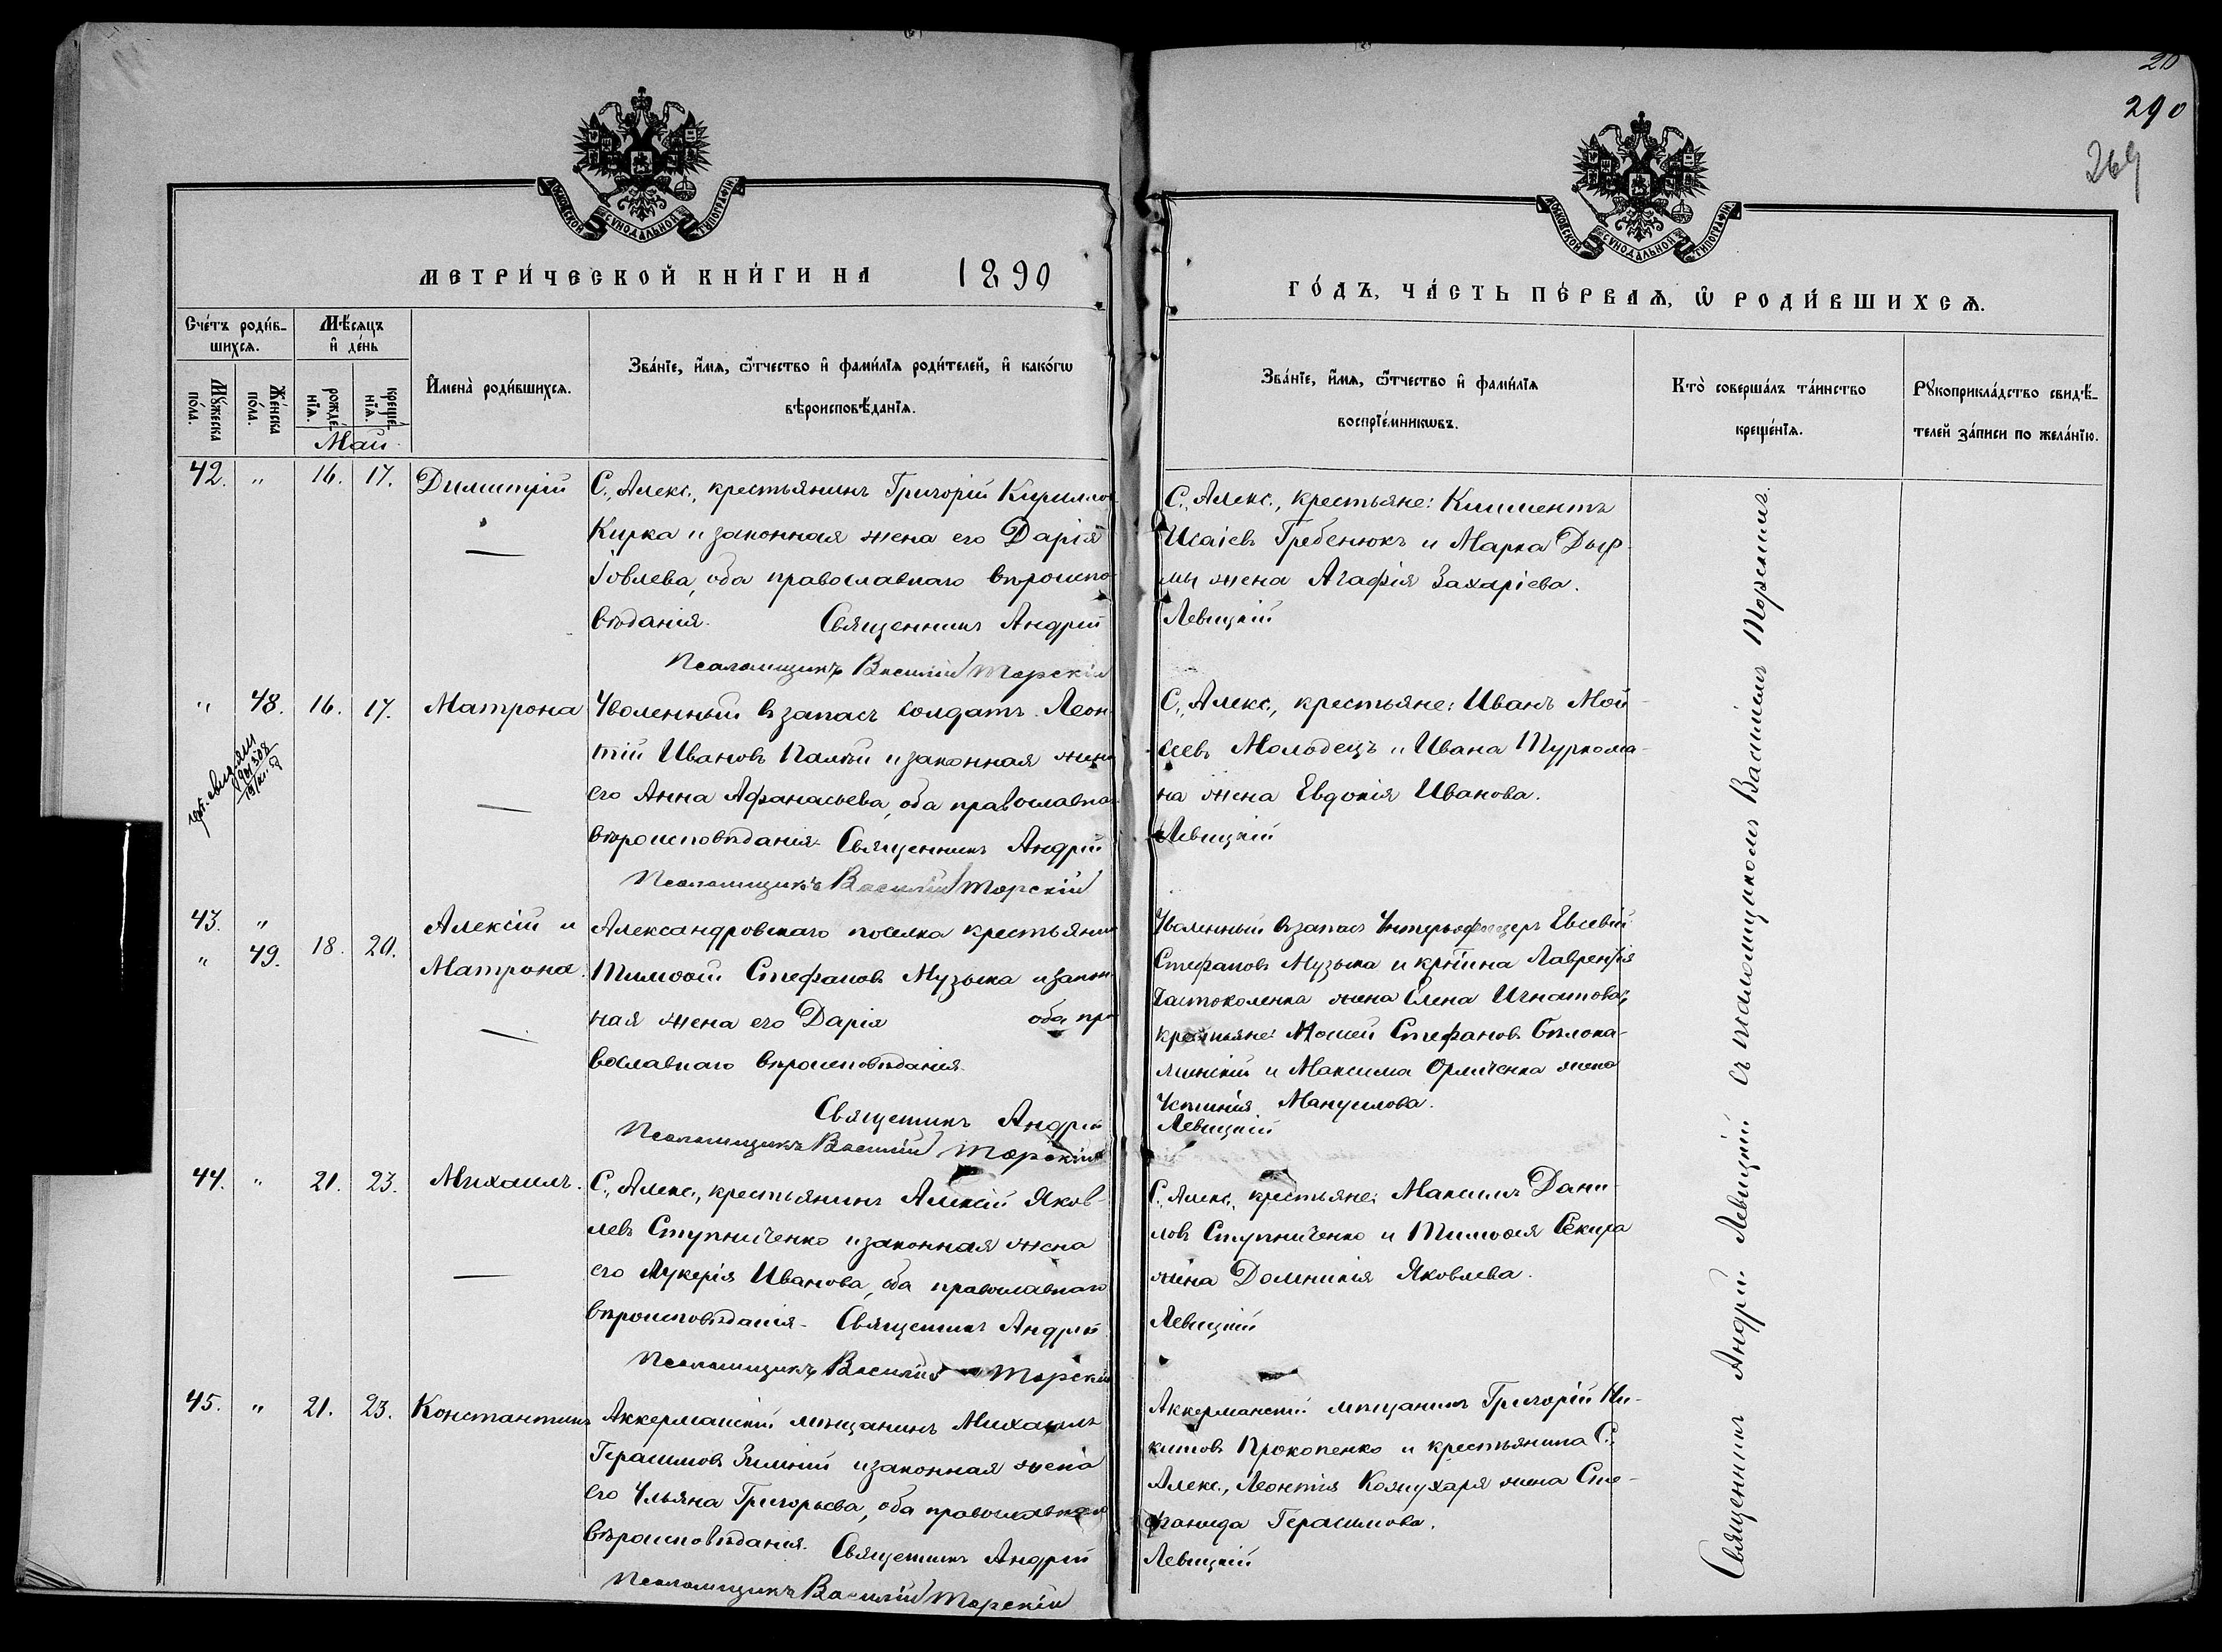 20
290
269
МОСКОВСКОЙ СѴНОДАЛЬНОЙ ТИПОГРАФІИ
МОСКОВСКОЙ СѴНОДАЛЬНОЙ ТИПОГРАФІИ
МЕТРИ́ЧЕСКОЙ КНИ́ГИ НА 1890
ГО́ДЪ, ЧА́СТЬ ПЕ́РВАѦ, Ѡ҆ РОДИ́ВШИХСѦ.
Сче́тъ роди́в-
шихсѧ.
Мѣ́сѧцъ
и҆ де́нь
Мꙋ́жеска
по́ла.
Же́нска
по́ла.
рожде́-
нїѧ.
креще́-
нїѧ.
И҆мена̀ роди́вшихсѧ.
Зва́нїе, и҆́мѧ, ѻ҆́тчество и҆ фами́лїѧ роди́телей, и҆ како́гѡ
вѣроисповѣ́данїѧ.
Зва́нїе, и҆́мѧ, ѻ҆́тчество и҆ фами́лїѧ
воспрїе́мникѡвъ.
Кто̀ соверша́лъ та́инство
креще́нїѧ.
Рꙋкоприкла́дство свидѣ́-
телей за́писи по жела́нїю.
Май.
42. " 16. 17. Димитрій
С., Алекс., крестьянинъ Григорій Кириллов
Кирка и законная жена его Дарія
Іовлева, оба православнаго вѣроиспо-
вѣданія. Священникъ Андрей
Псаломщикъ Василій Торскій
С., Алекс., крестьяне: Климентъ
Исаіевъ Гребенюкъ и Марка
жена Агафія Захаріева.
Левицкій
" 48. 16. 17. Матрона
Уволенный въ запасъ солдатъ Леон-
тій Ивановъ Палій и законная жена
его Анна Афанасьева, оба православна-
вѣроисповѣданія. Священникъ Андрей
Псаломщикъ Василій Торскій
С., Алекс., крестьяне: Иванъ Мой-
сеевъ Молодецъ и Ивана Туркома-
на жена Евдокія Иванова.
Левицкій
43. "
" 49. 18. 20.
Алексій и
Матрона.
Александровскаго поселка крестьянин
Тимоѳей Стефановъ Музыка и закон-
ная жена его Дарія оба пра
вославнаго вѣроисповѣданія.
Священникъ Андрей
Псаломщикъ Василій Торскій
Уволенный въ запас Унтерофицеръ Евсевій
Стефановъ Музыка и кр̃тина Лаврентія
Частоколенка жена Елена Игнатова,
крестьяне: Моисей Стефановъ Бѣлока-
минскій и Максима жена
Устинія Мануилова.
Левицкій
44. " 21. 23. Михаилъ.
С., Алекс., крестьянинъ Алексій Яков-
левъ Ступниченко и законная жена
его Лукерія Иванова, оба православнаго
вѣроисповѣданія. Священникъ Андрей
Псаломщикъ Василій Торскій
С., Алекс., крестьяне: Максимъ Дани-
ловъ Ступниченко и Тимоѳея Секира
жена Домникія Яковлева.
Левицкій
45. " 21. 23. Константинъ
Аккерманскій мѣщанинъ Михаилъ
Герасимовъ Зимній и законная жена
его Ульяна Григорьева, оба православнаго
вѣроисповѣданія. Священникъ Андрей
Псаломщикъ Василій Торскій
Аккерманскій мѣщанинъ Григорій Ни-
китовъ Прокопенко и крестьянина С.,
Алекс., Леонтія Кожухаря жена Сте-
фанида Герасимова.
Левицкій
Священникъ Андрей Левицкій съ псаломщикомъ Василіемъ Торскимъ.